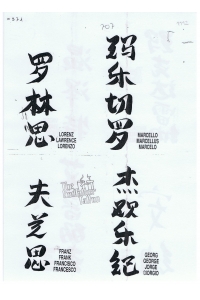 罗
林
思
LORENZ
LAWRENCE
LORENZO
玛
乐
切
罗
MARCELLO
MARCELLUS
MARCELO
夫
芝
思
FRANZ
FRANK
FRANCISCO
FRANCESCO
杰
欢
乐
纪
GEORG
GEORGE
JORGE
GIORGIO